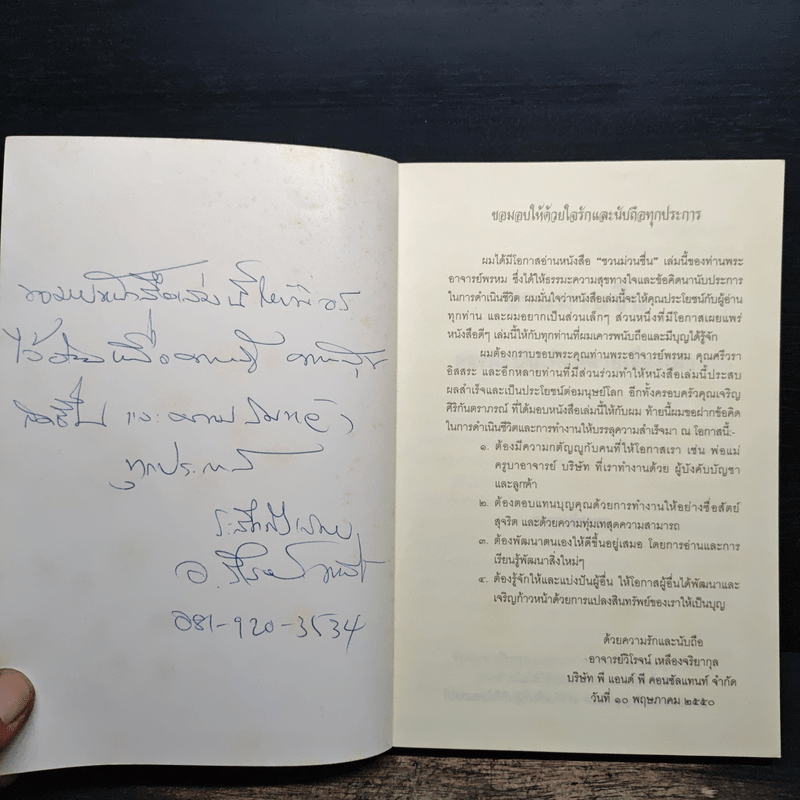 ขอมอบหนังสือเล่มนี้ให้พี่อร
ไว้อ่านเพื่อความ
และความ
ทุกประการ
ระลึกถึงเสมอ
อ.วิโรจน์
081-920-3534
ขอมอบให้ด้วยใจรักและนับถือทุกประการ
ผมได้มีโอกาสอ่านหนังสือ "ชวนม่วนชื่น" เล่มนี้ของท่านพระ
อาจารย์พรหม ซึ่งได้ให้ธรรมะความสุขทางใจและข้อคิดนานัปประการ
ในการดำเนินชีวิต ผมมั่นใจว่าหนังสือเล่มนี้จะให้คุณประโยชน์กับผู้อ่าน
ทุกท่าน และผมอยากเป็นส่วนเล็กๆ ส่วนหนึ่งที่มีโอกาสเผยแพร่
หนังสือดีๆ เล่มนี้ให้กับทุกท่านที่ผมเคารพนับถือและมีบุญได้รู้จัก
ผมต้องกราบขอบพระคุณท่านพระอาจารย์พรหม คุณศรีวรา
อิสสระ และอีกหลายท่านที่มีส่วนร่วมทำให้หนังสือเล่มนี้ประสบ
ผลสำเร็จและเป็นประโยชน์ต่อมนุษย์โลก อีกทั้งครอบครัวคุณเจริญ
ศิริกันตราภรณ์ ที่ได้มอบหนังสือเล่มนี้ให้กับผม ท้ายนี้ผมขอฝากข้อคิด
ในการดำเนินชีวิตและการทำงานให้บรรลุความสำเร็จมา ณ โอกาสนี้:-
๑. ต้องมีความกตัญญูกับคนที่ให้โอกาสเรา เช่น พ่อแม่
ครูบาอาจารย์ บริษัท ที่เราทำงานด้วย ผู้บังคับบัญชา
และลูกค้า
๒. ต้องตอบแทนบุญคุณด้วยการทำงานให้อย่างซื่อสัตย์
สุจริต และด้วยความทุ่มเทสุดความสามารถ
๓. ต้องพัฒนาตนเองให้ดีขึ้นอยู่เสมอ โดยการอ่านและการ
เรียนรู้พัฒนาสิ่งใหม่ๆ
๔. ต้องรู้จักให้และแบ่งปันผู้อื่น ให้โอกาสผู้อื่นได้พัฒนาและ
เจริญก้าวหน้าด้วยการแปลงสินทรัพย์ของเราให้เป็นบุญ
ด้วยความรักและนับถือ
อาจารย์วิโรจน์ เหลืองจริยากุล
บริษัท พี แอนด์ พี คอนซัลแทนท์ จำกัด
วันที่ ๑๐ พฤษภาคม ๒๕๕๐